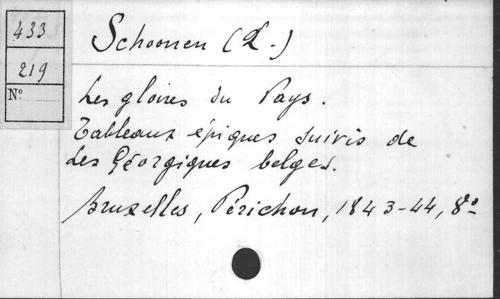 433
219
N°
Schoonen (L.)
Les gloires du Pays.
Tableaux épiques suivis de
Les Géorgiques belges.
Bruxelles, Périchon, 1843-44, 8°